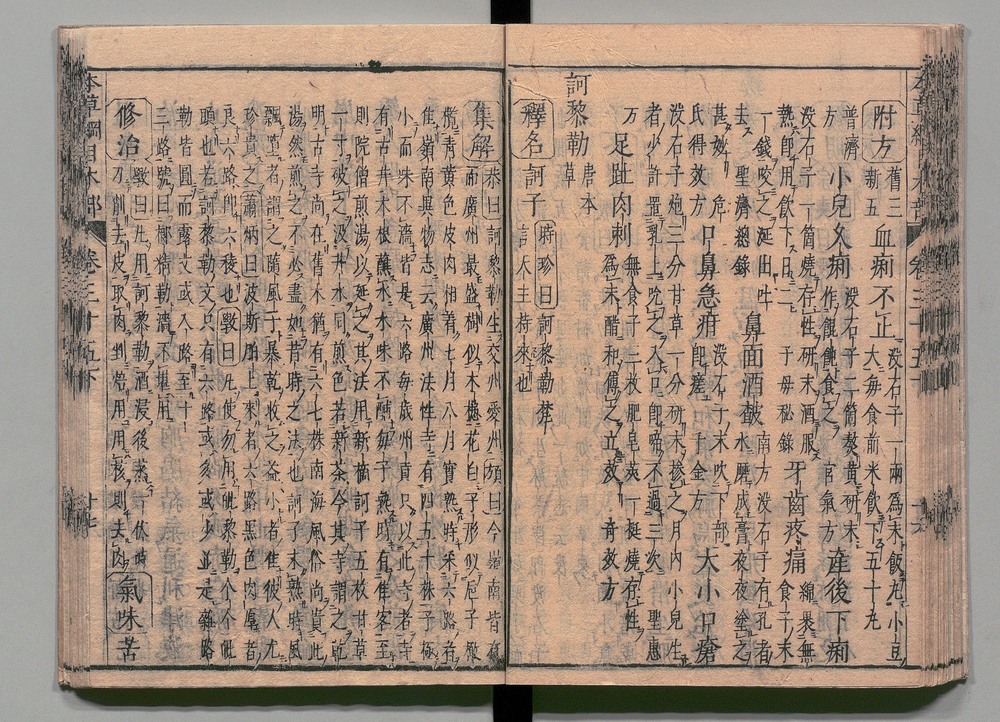 附方 舊三新五 血痢不止 没石子一兩為末飯丸小豆大每食前米飲下五十丸
普濟方 小兒久痢 没石子二箇熬黄研末作餛飩食之 宫氣方 產後下痢
没石子一箇燒存性研末酒服
熱即用飲下日二 子母秘錄 牙齒疼痛 綿裹無食子末
一錢咬之涎出吐
去之 聖濟總錄 鼻面酒皶 南方没石子有孔者水磨成膏夜夜塗之
甚妙 危氏得效方 口鼻急疳 没石子末吹下部即瘥 千金方 大小口瘡
没石子炮三分甘草一分研末摻之月内小兒生
者少許置乳上吮之入口即啼不過三次 聖惠
方 足趾肉刺 無食子三枚肥皂莢一挺燒存性為末醋和傅之立效 奇效方
訶黎勒 唐本草
釋名 訶子 時珍曰訶黎勒梵言天主持來也
集解 恭曰訶黎勒生交州愛州頌曰今嶺南皆有
而廣州最盛樹似木槵花白子形似巵子橄
欖青黄色皮肉相着七月八月實熟時采六路者
佳嶺南異物志云廣州法性寺有四五十株子極
小而味不澀皆是六路每歲州貢只以此寺者寺
有古井木根蘸水水味不鹹每子熟時有佳客至
則院僧煎湯以延之其法用新摘訶子五枚甘草
一寸破之汲井水同煎色若新茶今其寺謂之乾
明古寺尚在舊木猶有六七株南海風俗尚貴此
湯然煎之不必盡如昔時之法也訶子未熟時風
飄墮者謂之隨風子暴乾收之益小者佳彼人尤
珍貴之蕭炳曰波斯舶上來者六路黑色肉厚者
良六路即六稜也 斅曰凡使勿用毗黎勒个个毗
頭也若訶黎勒文只有六路或多或少並是雜路
勒皆圓而露文或八路至十
三路號曰榔精勒澀不堪用
修治 斅曰凡用訶黎勒酒浸後蒸一伏時
刀削去皮取肉剉焙用用核則去肉 氣味 苦
本草綱目木部 卷三十五下